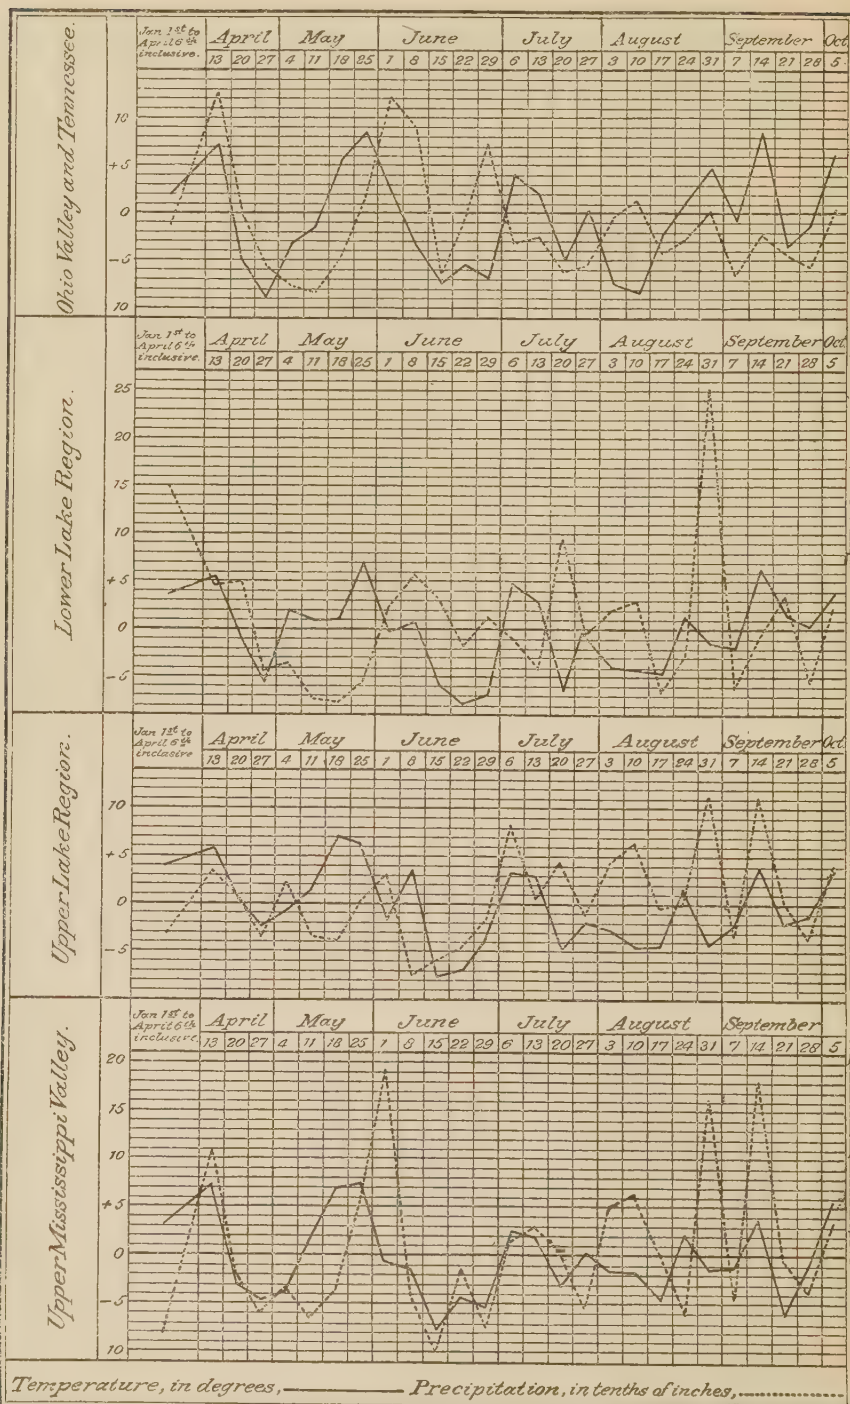 Ohio Valley and Tennessee.
Jan 1st to
April 6th
inclusive.
April May June July August September Oct
13 20 27 4 11 18 25 1 8 15 22 29 6 13 20 27 3 10 17 24 31 7 14 21 28 5
10
+5
0
-5
10
Lower Lake Region.
Jan 1st to
April 6th
inclusive.
April May June July August September Oct
13 20 27 4 11 18 25 1 8 15 22 29 6 13 20 27 3 10 17 24 31 7 14 21 28 5
25
20
15
10
+5
0
-5
Upper Lake Region.
Jan 1st to
April 6th
inclusive
April May June July August September Oct.
13 20 27 4 11 18 25 1 8 15 22 29 6 13 20 27 3 10 17 24 31 7 14 21 28 5
10
+5
0
-5
Upper Mississippi Valley.
Jan 1st to
April 6th
inclusive.
April May June July August September
13 20 27 4 11 18 25 1 8 15 22 29 6 13 20 27 3 10 17 24 31 7 14 21 28 5
20
15
10
+5
0
-5
10
Temperature, in degrees, Precipitation, in tenths of inches,